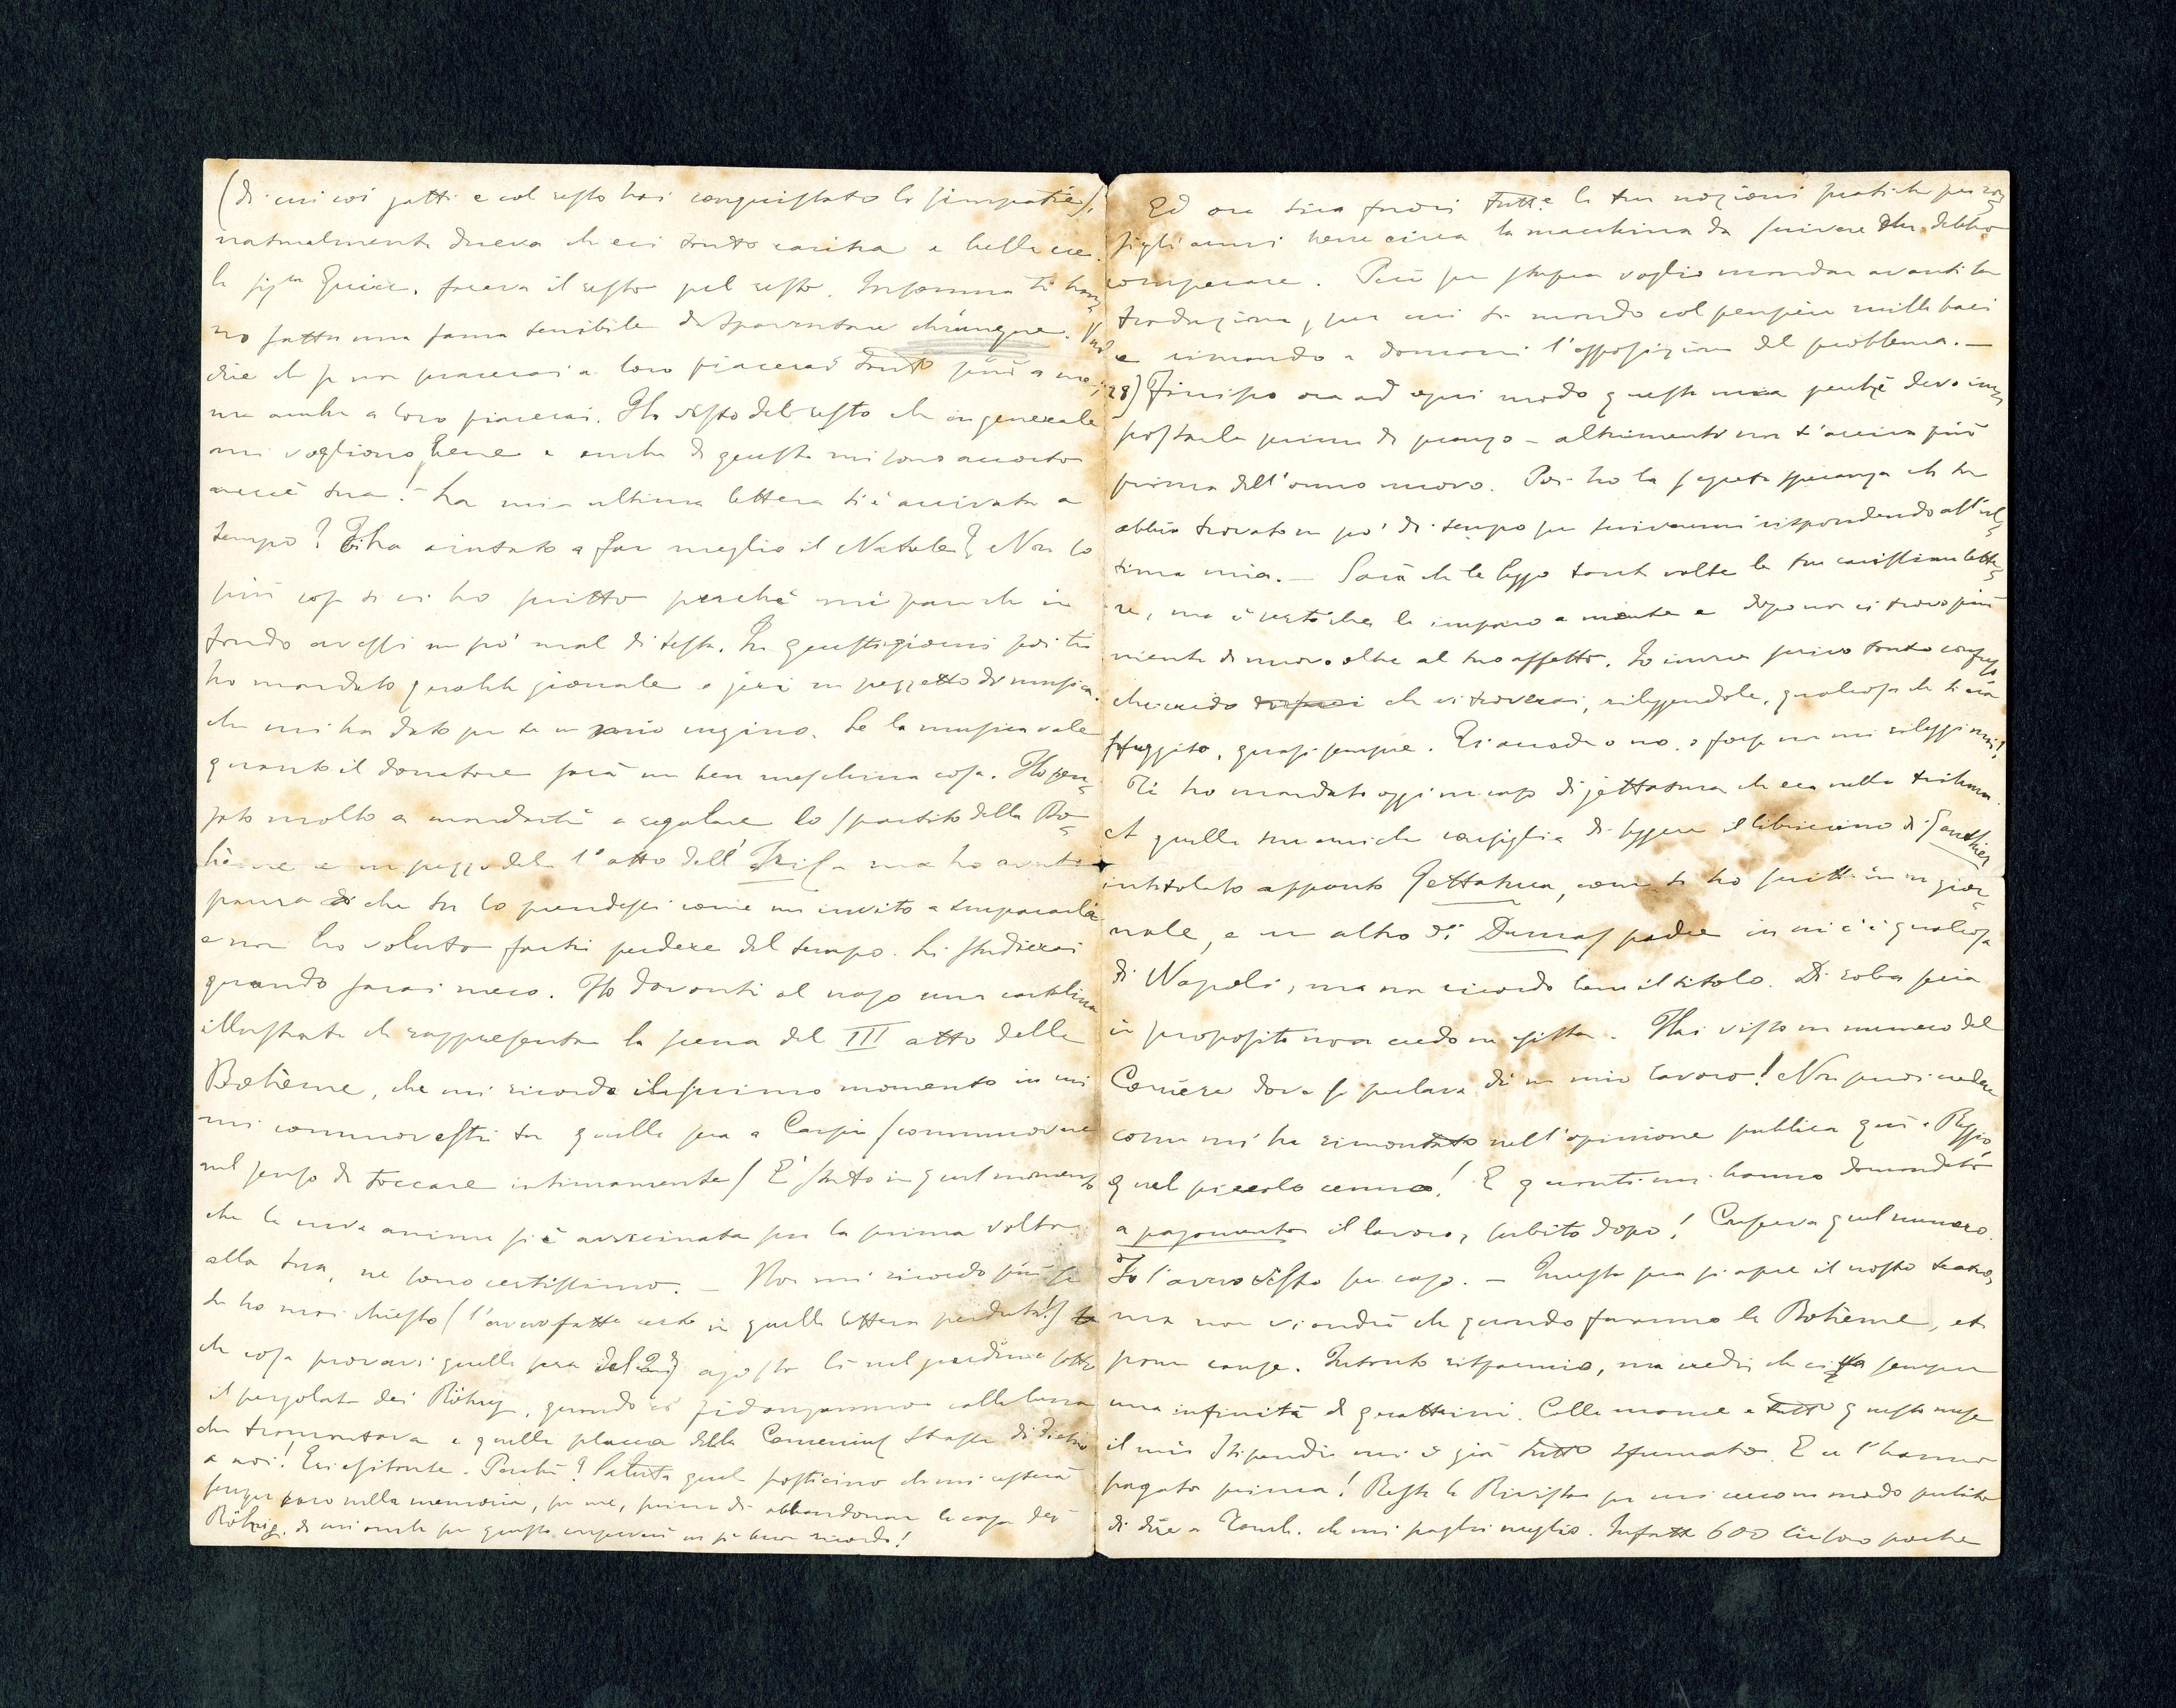 (di cui coi gatti e col resto hai conquistato la simpatia),
naturalmente diceva che eri tanto carina e bella ecc.
la sig.ra faceva il resto pel resto. Insomma ti han-
no fatta una fama terribile da spaventare chiunque. Vuol
dire che se non piacerai a loro piacerai tanto più a me,
ma anche a loro piacerai. Ho visto del resto che in generale
mi vogliono bene e anche di questo mi sono accorto
mercè tua! – La mia ultima lettera ti è arrivata a
tempo? Ti ha aiutato a far meglio il Natale? Non so
più cosa ti ci ho scritto perchè mi pare che in
fondo avessi un po' mal di testa. In questi giorni poi ti
ho mandato qualche giornale e jeri un pezzetto di musica
che mi ha dato per te un mio cugino. Se la musica vale
quanto il donatore sarà una ben meschina cosa. Ho pen-
sato molto a mandarti a regalare lo spartito della Bo-
hème e un pezzo del 1° atto dell'Iris ma ho avuto
paura che tu lo prendessi come un invito a impararla
e non ho voluto farti perdere del tempo. Li studierai
quando sarai meco. Ho davanti al naso una cartolina
illustrata che rappresenta la scena del III atto della
Bohème, che mi ricorda il primo momento in cui
mi commovesti tu quella sera a Carpi (commuovere
nel senso di toccare intimamente) E' stato in quel momento
che la mia anima si è avvicinata per la prima volta
alla tua, ne sono certissimo. – Non mi ricordo più se
te ho mai chiesto (l'avevo fatto certo in quella lettera perduta!)
che cosa provavi quella sera del agosto là nel giardino sotto
il pergolato dei Röhrig, quando ci fidanzammo colla luna
che tramontava e quella placca della Comenius Strasse di dietro
a noi! Eri esitante. Perchè? Saluta quel posticino che mi resterà
sempre caro nella memoria, per me, prima di abbandonare la casa dei
Röhrig, di cui anche per questo conserverò un sì buon ricordo!
Ed ora tira fuori tutte le tue nozioni pratiche per con-
sigliarmi bene circa la macchina da scrivere che debbo
comperare. Più per stasera voglio mandar avanti la
traduzione, per cui ti mando col pensiero mille baci
e rimando a domani l'esposizione del problema. –
28) Finisco ora ad ogni modo questa mia perchè devo im-
postarla prima di pranzo – altrimenti non t'arriva più
prima dell'anno nuovo. Poi ho la segreta speranza che tu
abbia trovato un po' di tempo per scrivermi rispondendo all'ul-
tima mia. – Sarà che le leggo tante volte le tue carissime lette-
re, ma è certo che le imparo a mente e dopo non ci trovo più
niente di nuovo oltre al tuo affetto. Io invece scrivo tanto confuso
che credo che vi troverai, rileggendole, qualcosa che ti era
sfuggito, quasi sempre. Ti accade o no, o forse non mi rileggi mai?
Ti ho mandato oggi un caso di jettatura che era nella tribuna.
A quella tua amica consiglia di leggere il libriccino di Gauthier
intitolato appunto Jettatura, come ti ho scritto in un gior-
nale, e un altro di Dumas padre in cui c'è qualcosa
di Napoli, ma non ricordo bene il titolo. Di roba seria
in proposito non credo ne esista. Hai visto un numero del
Corriere dove si parlava di un mio lavoro! Non puoi credere
come mi ha rimontato nell'opinione pubblica qui a Reggio
quel piccolo cenno! E quanti mi hanno domandato
a pagamento il lavoro, subito dopo! Conserva quel numero.
Io l'avevo visto per caso. – Questa sera si apre il nostro teatro,
ma non vi andrò che quando faranno la Bohème, et
pour cause. Intanto risparmio, ma credi che ci va sempre
una infinità di quattrini. Colle mancie e tutto questo mese
il mio stipendio mi è già tutto sfumato. E ce l'hanno
pagato prima! Resta la Rivista per cui raccomando
di dire a che mi paghi meglio. Infatti 600 lire sono poche